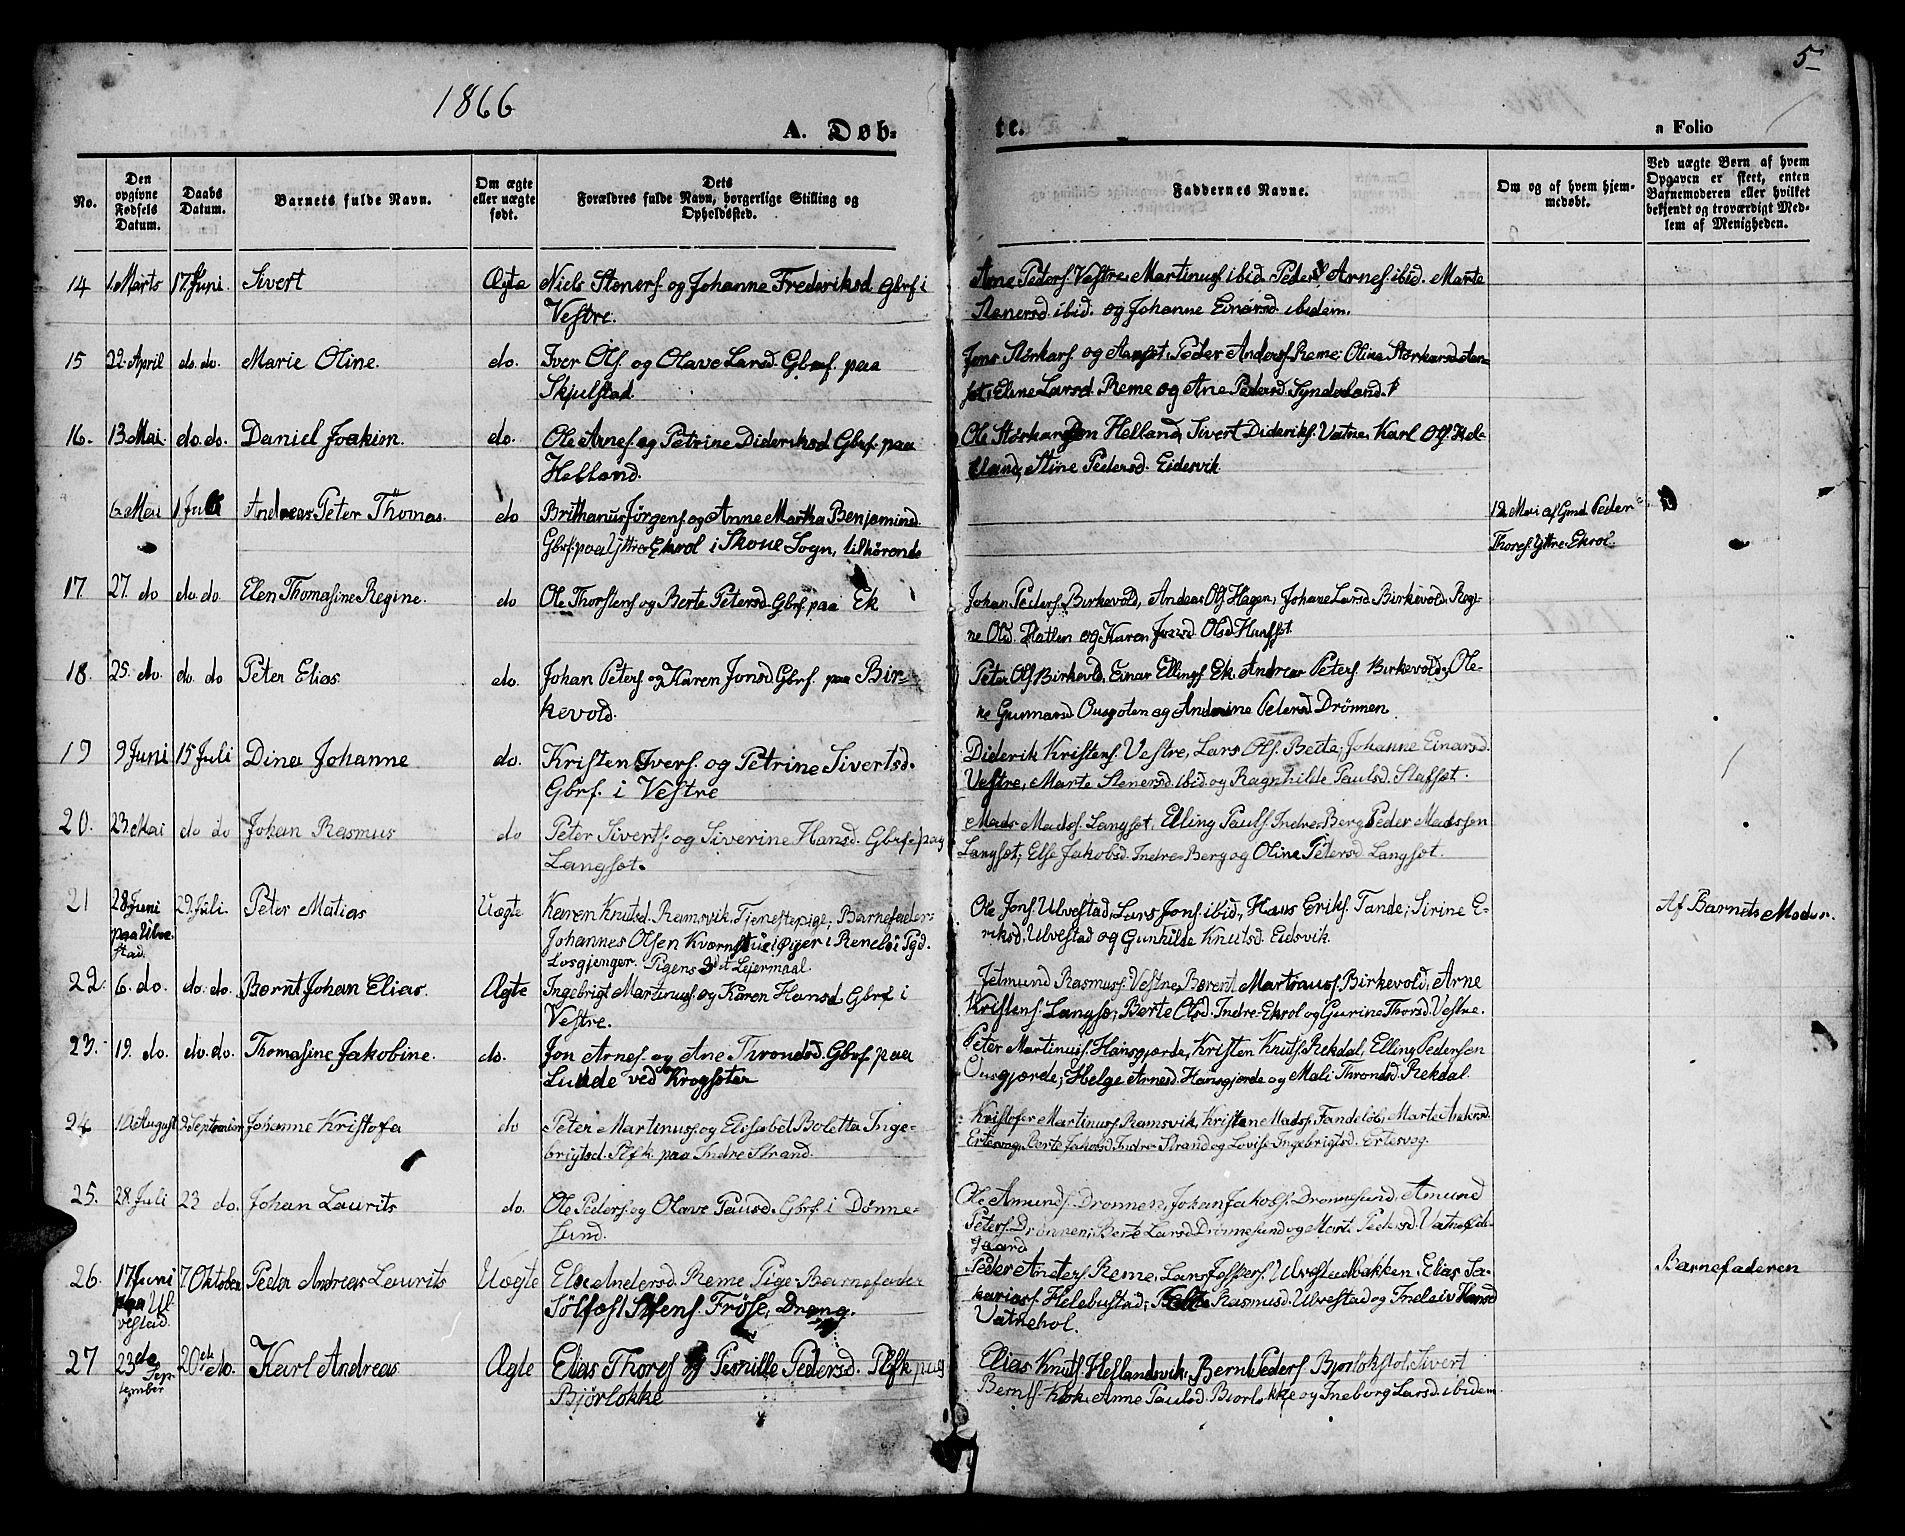 1866
5
A. Døb-
te.
a Folio
No.
Den opgivne Fødsels Datum.
Daabs Datum.
Barnets fulde Navn.
Om ægte eller uægte født.
Dets Forældres fulde Navn, borgerlige Stilling og Opholdssted.
Faddernes Navne.
Om og af hvem hjemmedøbt.
Ved uægte Børn af hvem Opgaven er skeet, enten Barnemoderen eller hvilket bekjendt og troværdigt Medlem af Menigheden.
14 1. Marts 17. Juni. Sivert Ægte Niels Stenersˢ. og Johanne Frederiksd. Gbrf. i
Vestre.
Arne Peders. Vestre, Martinus ibid. Peder Arnes. ibid. Marte
Stenersd. ibid. og Johanne Einarsd. ibidem.
15 22. April do. do. Marie Oline. do. Iver Ols. og Olave Larsd. Gbrf. paa
Skjulstad.
Jens Størkars. og Peder Anders. Reme; Oline Størkarsd.
Eline Larsd. Reme og Ane Pedersd. Synderland.
16. 13. Mai do. do. Daniel Joakim. do. Ole Arnes. og Petrine Dideriksd. Gbrf. paa
Helland.
Ole Helland, Sivert Dideriks. Vatne, Karl Ols. Hel-
land, Stine Pedersd. Eidesvik.
6. Mai 1 Juli Andreas Peter Thomas. do Brithanus Jørgens. og Anne Martha Benjamind.
Gbrf. paa Yttre Ekrol i Skoue Sogn, tilhørende
12 Mai af Gmd. Peder
Thores. Yttre-Ekrol.
17 27. do do. do Elen Thomasine Regine. do Ole Thorstens. og Berte Petersd. Gbrf. paa Ek
Johan Peders. Birkevold, Andreas Ols. Hagen, Johane Larsd. Birkevold. Regi-
ne Olsd. Hatlen og Karen
18. 25. do. do. do Peter Elias do. Johan Peters. og Karen Jonsd. Gbrf. paa Bir-
kevold.
Peter Ols. Birkevold, Einar Ellings. Ek, Andreas Peters. Birkevold; Ole-
ne Gunnarsd. og Andrine Petersd. Drönnen.
19 9 Juni 15 Juli Dina Johanne do. Kristen Ivers. og Petrine Sivertsd.
Gbrf. i Vestre
Diderik Kristens. Vestre, Lars Ols. Beite; Johanne Einarsd.
Vestre, Marte Stenersd. ibid. og Ragnhilde Paulsd. Slafsæt.
20. 23. Mai do do Johan Rasmus do Peter Siverts. og Siverine Hansd. Gbrf. paa
Langsæt.
Mads Mads. Langsæt, Elling Pauls. Indre Berg, Peder Madssen
Langsæt; Else Jakobsd. Indre-Berg og Oline Petersd. Langsæt.
21 28. Juni 29. Juli. Peter Matias Uægte Karen Knutsd. Ramsvik, Tjenestepige; Barnefader:
paa Ulve-
stad.
Johannes Olsen i Renebö Pgd.
Losgjenger. Pigens 3det Leiermaal.
Ole Jons. Ulvestad, Lars Jons. ibid, Hans Eriks. Tande; Sirine E-
riksd. Ulvestad og Gunhilde Knutsd. Eidsvik.
Af Barnets Moder.
22. 6. do. do. do. Bernt Johan Elias. Ægte Ingebrigt Martinus. og Karen Hansd. Gbrf. i
Vestre.
Jetmund Rasmus. Vestre, Berent Martinus. Birkevold, Arne
Kristens. Langsæ; Berte Olsd. Indre-Ekrol og Gurine Thorsd. Vestre.
23. 19. do. do. do. Thomasine Jakobine. do. Jon Arnes. og Ane Throndsd. Gbrf. paa
Lunde ved Krogsæter
Peter Martinus. Hansgjærde, Kristen Knuts. Rekdal, Elling Pedersen
Ousgjærde; Helge Arnesd. Hansgjærde og Mali Throndsd. Rekdal.
24 10 August 9 September Johanne Kristofa do Peter Martinus. og Elisabet Boletta Inge-
brigtsd. Plfk. paa Indre Strand.
Kristofer Martinus. Ramsvik, Kristen Mads. Tandelöb; Marte Andersd.
Ertesvog, Berte Jakobsd. Indre-Strand og Lovise Ingebrigtsd. Ertesvog.
25. 28. Juli 23 do. Johan Laurits do. Ole Peders. og Olave Paulsd. Gbrf. i Dönne-
sund.
Ole Amunds. Drönnen, Johan Jakobs. Drönnesund, Amund
Peters. Drönnen; Berte Larsd. Drönnesund og Marte Pedersd. Vatne Eid-
gaard
26. 17 Juni 7 Oktober Peder Andreas Laurits Uægte Else Andersd. Reme Pige. Barnefader
paa Ul-
vestad.
Sölfæst Stens. Fröse, Dreng.
Peder Anders. Reme, Lars Jespers. Ulvestadbakken, Elias Sa-
karias. Helebustad; Berte Rasmusd. Ulvestad og Hansd
Vatnehol.
Barnefaderen
27 23de Sep-
tember
20de do. Karl Andreas Ægte Elias Thores. og Pernille Pedersd. Plfk. paa
Björlökke
Elias Knuts. Hellandsvik, Bernt Peders. Björlökstol, Sivert
Bernts. Anne Paulsd. Björlökke og Ineborg Larsd. ibidem